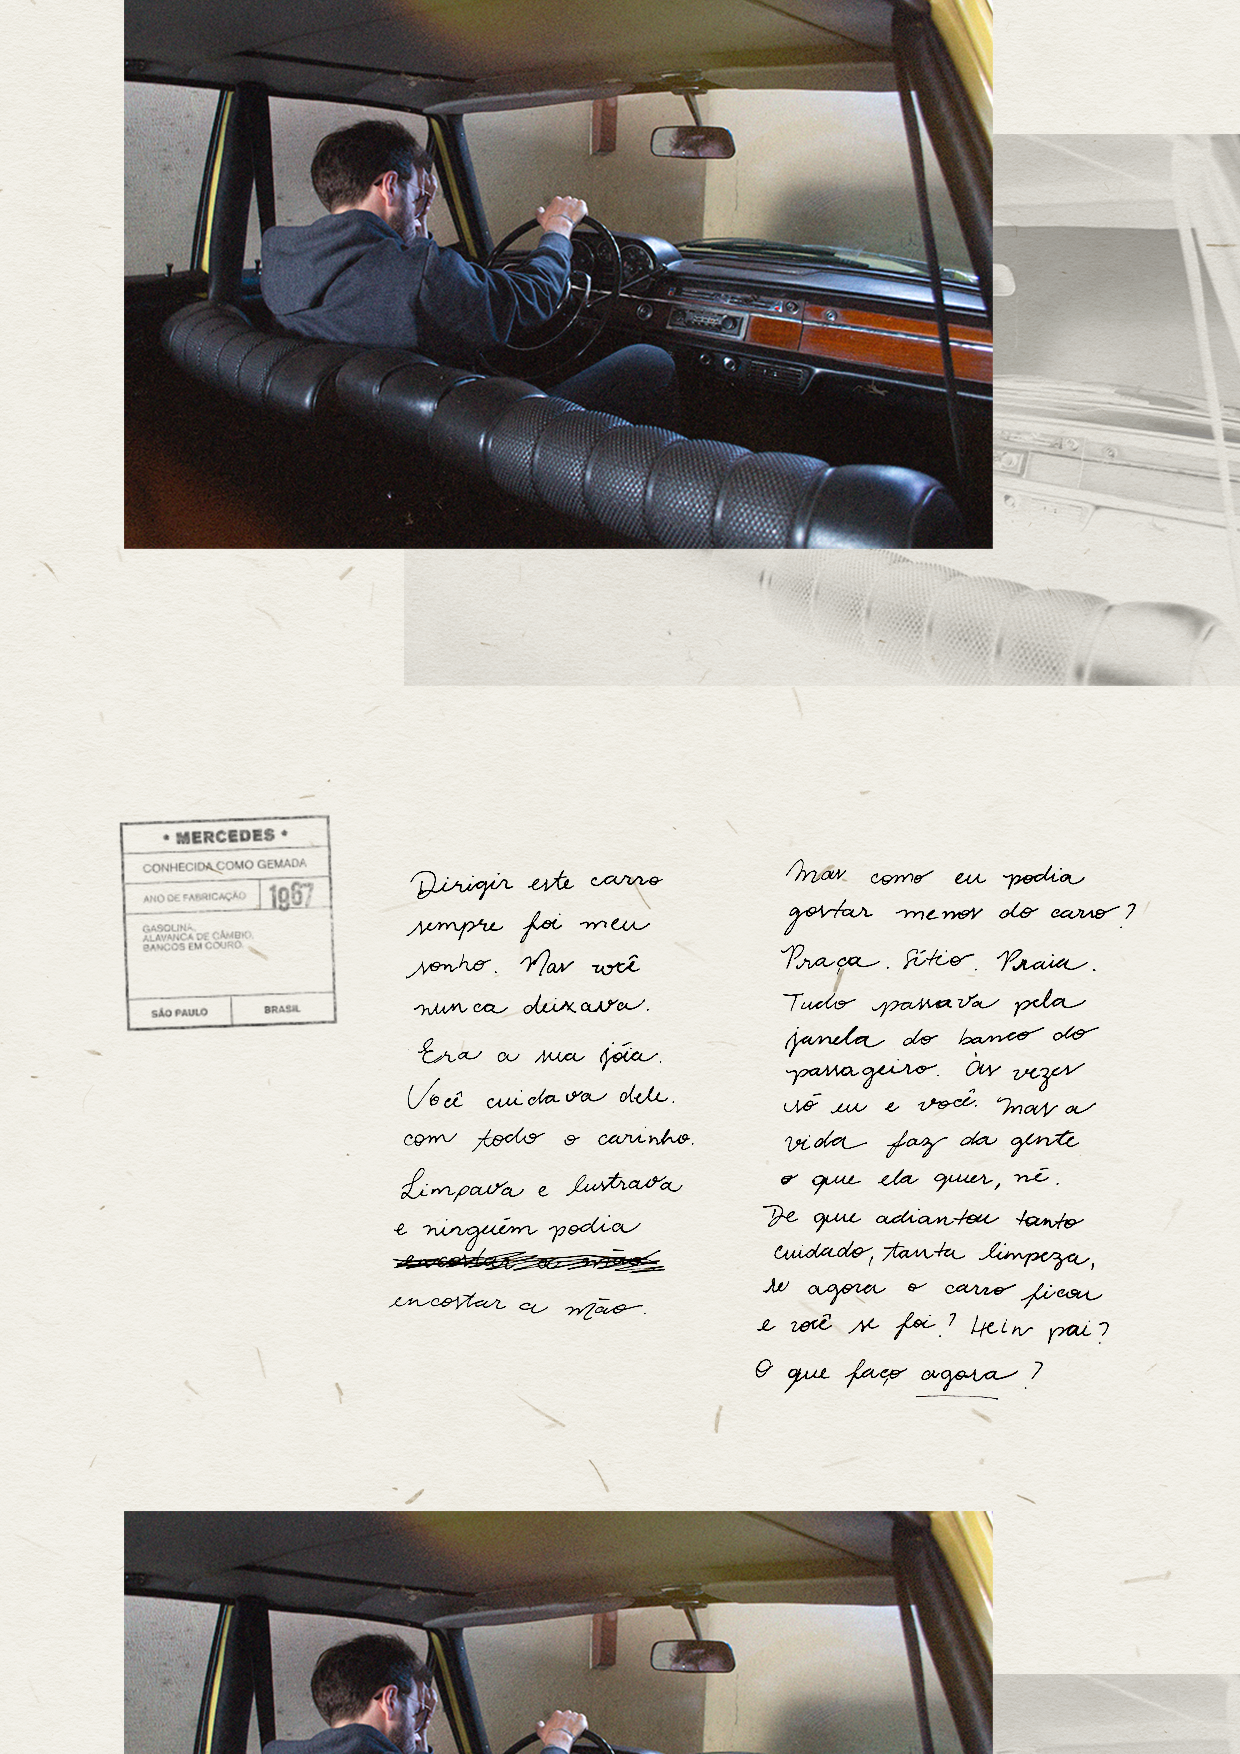 • MERCEDES •
CONHECIDA COMO GEMADA
ANO DE FABRICAÇÃO 1967
GASOLINA.
ALAVANCA DE CÂMBIO.
BANCOS EM COURO.
SÃO PAULO BRASIL
Dirigir este carro
sempre foi meu
sonho. Mas você
nunca deixava.
Era a sua jóia.
Você cuidava dele.
com todo o carinho.
Limpava e lustrava
e ninguém podia
encostar a mão
encostar a mão.
Mas como eu podia
gostar menos do carro?
Praça. Sítio. Praia.
Tudo passava pela
janela do banco do
passageiro. Às vezes
só eu e você. Mas a
vida faz da gente
o que ela quer, né.
De que adiantou tanto
cuidado, tanta limpeza,
se agora o carro ficou
e você se foi? Hein pai?
O que faço agora?